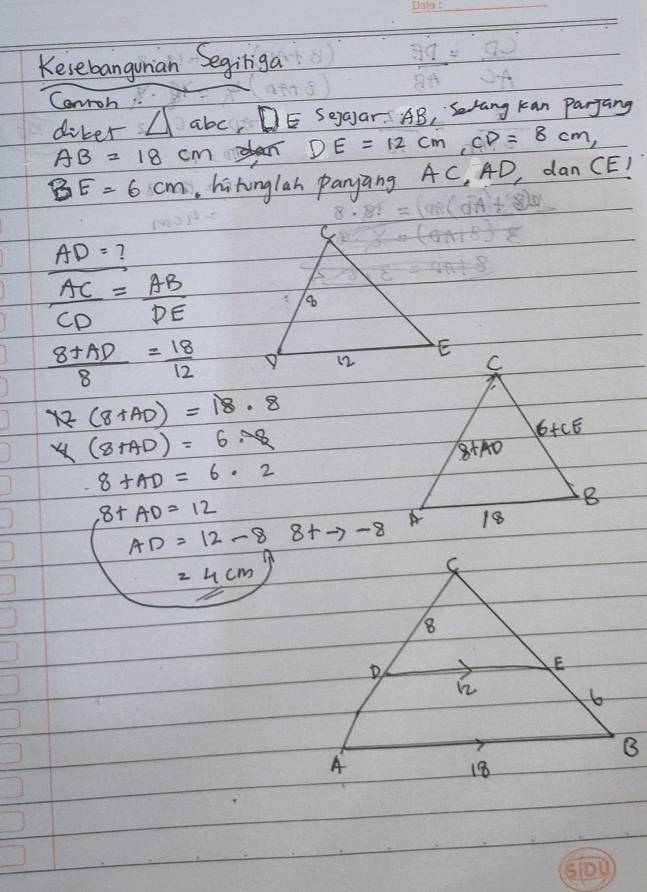 Date :
Kesebangunan Segitiga
Contoh :
diket △ abc, DE sejajar AB, sedangkan panjang
AB = 18 cm dan DE = 12 cm, CD = 8 cm,
BE = 6 cm. hitunglah panjang AC, AD, dan CE!
AD = ?
AC = AB
CD DE
8+AD = 18
8 12
12 (8+AD) = 18 . 8
4 (8+AD) = 6 . 8
8 + AD = 6 . 2
8 + AD = 12
AD = 12 - 8 8+ → -8
= 4 cm
C
8
D
12
E
C
8+AD
6+CE
A
18
B
C
8
D
12
E
6
A
18
B
SiDU